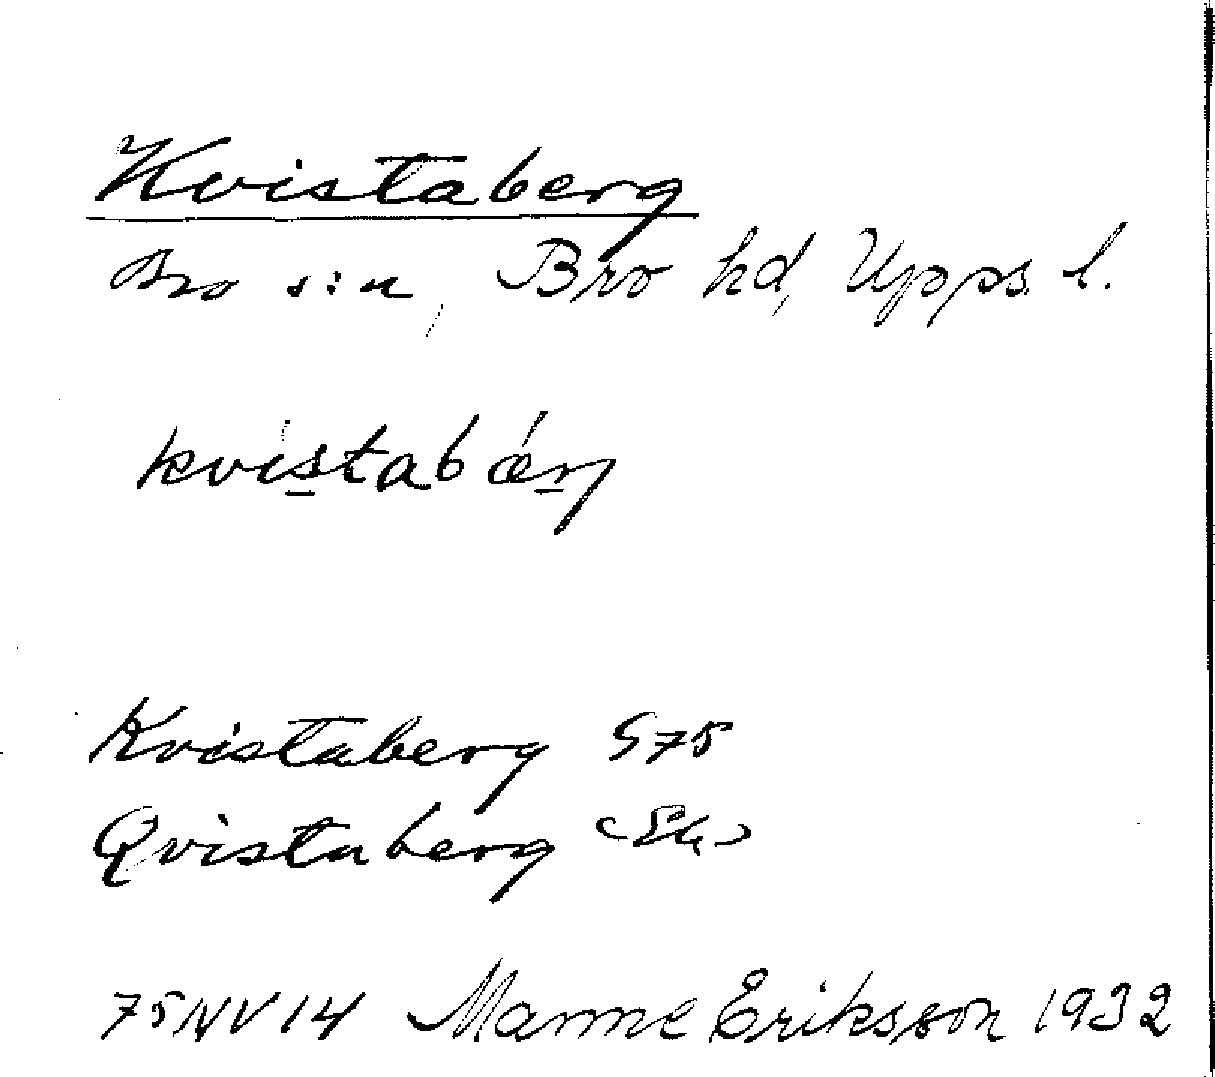 Kvistaberg
Bro s:n, Bro hd, Upps. l.
kvistabǽrj
Kvistaberg S75
Qvistaberg (Ek)
75NV14 Manne Eriksson 1932